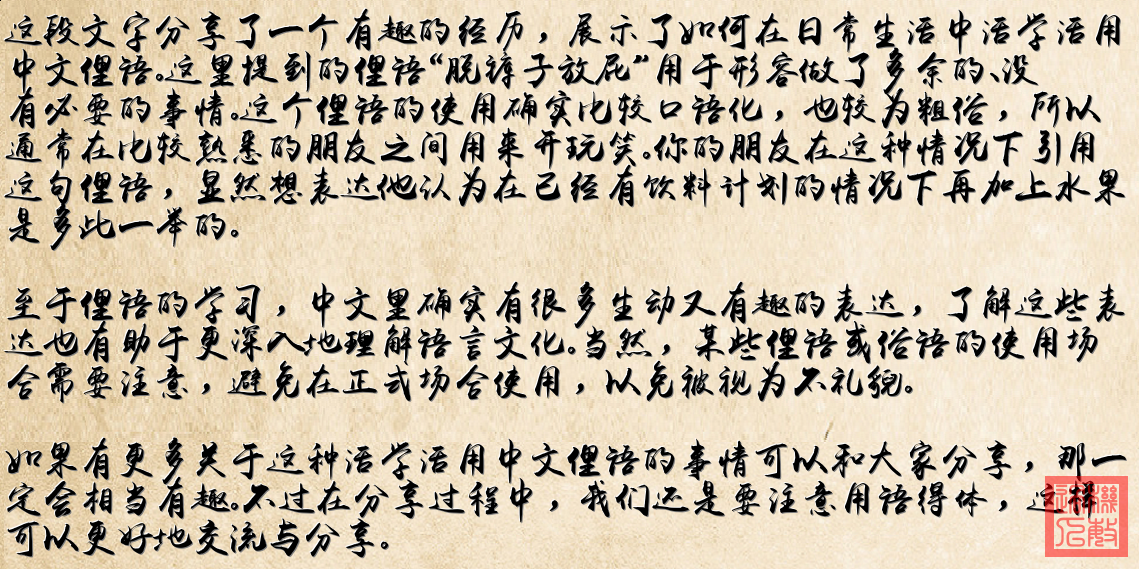 这段文字分享了一个有趣的经历，展示了如何在日常生活中活学活用
中文俚语。这里提到的俚语“脱裤子放屁”用于形容做了多余的、没
有必要的事情。这个俚语的使用确实比较口语化，也较为粗俗，所以
通常在比较熟悉的朋友之间用来开玩笑。你的朋友在这种情况下引用
这句俚语，显然想表达他认为在已经有饮料计划的情况下再加上水果
是多此一举的。
至于俚语的学习，中文里确实有很多生动又有趣的表达，了解这些表
达也有助于更深入地理解语言文化。当然，某些俚语或俗语的使用场
合需要注意，避免在正式场合使用，以免被视为不礼貌。
如果有更多关于这种活学活用中文俚语的事情可以和大家分享，那一
定会相当有趣。不过在分享过程中，我们还是要注意用语得体，这样
可以更好地交流与分享。